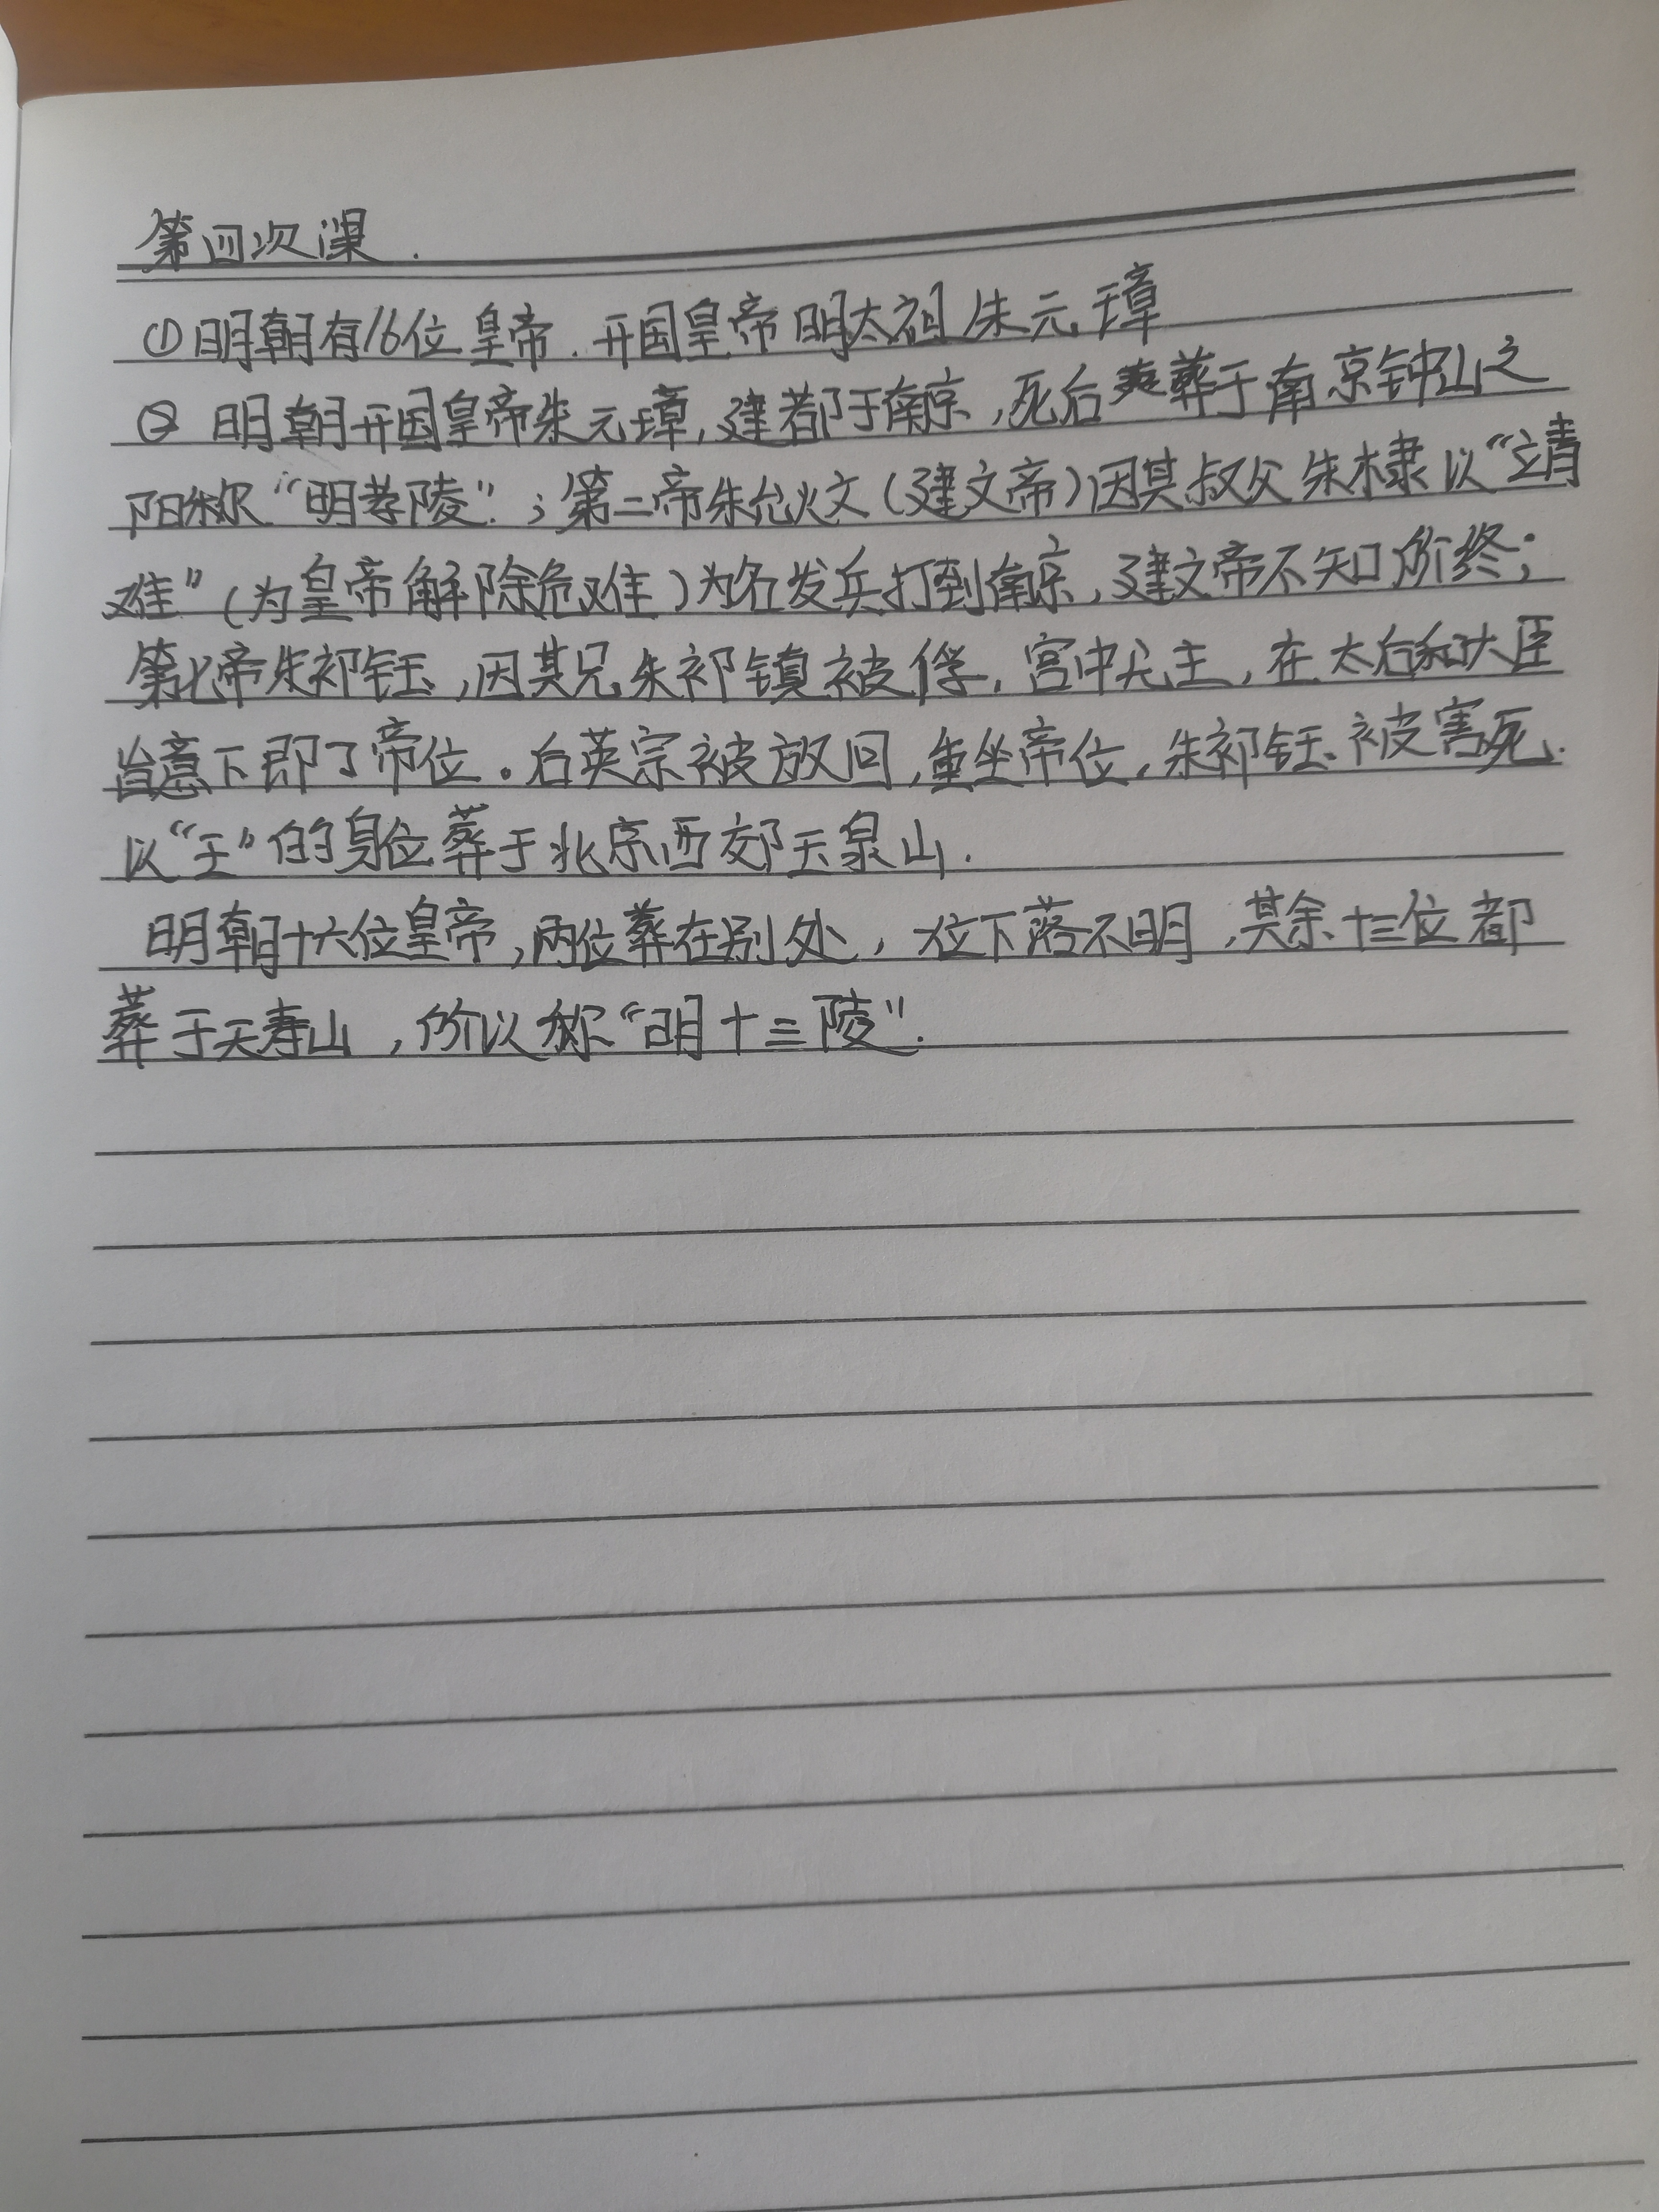 第四次课.
①明朝有16位皇帝.开国皇帝明太祖朱元璋
② 明朝开国皇帝朱元璋,建都于南京,死后葬于南京钟山之
阳称“明孝陵”;第二帝朱允炆(建文帝)因其叔父朱棣以“靖
难”(为皇帝解除危难)为名发兵打到南京,建文帝不知所终;
第七帝朱祁钰,因其兄朱祁镇被俘,宫中无主,在太后和大臣
旨意下即了帝位。后英宗被放回,重坐帝位,朱祁钰被害死.
以“王”的身位葬于北京西郊玉泉山.
明朝十六位皇帝,两位葬在别处,一位下落不明,其余十三位都
葬于天寿山,所以称“明十三陵”.